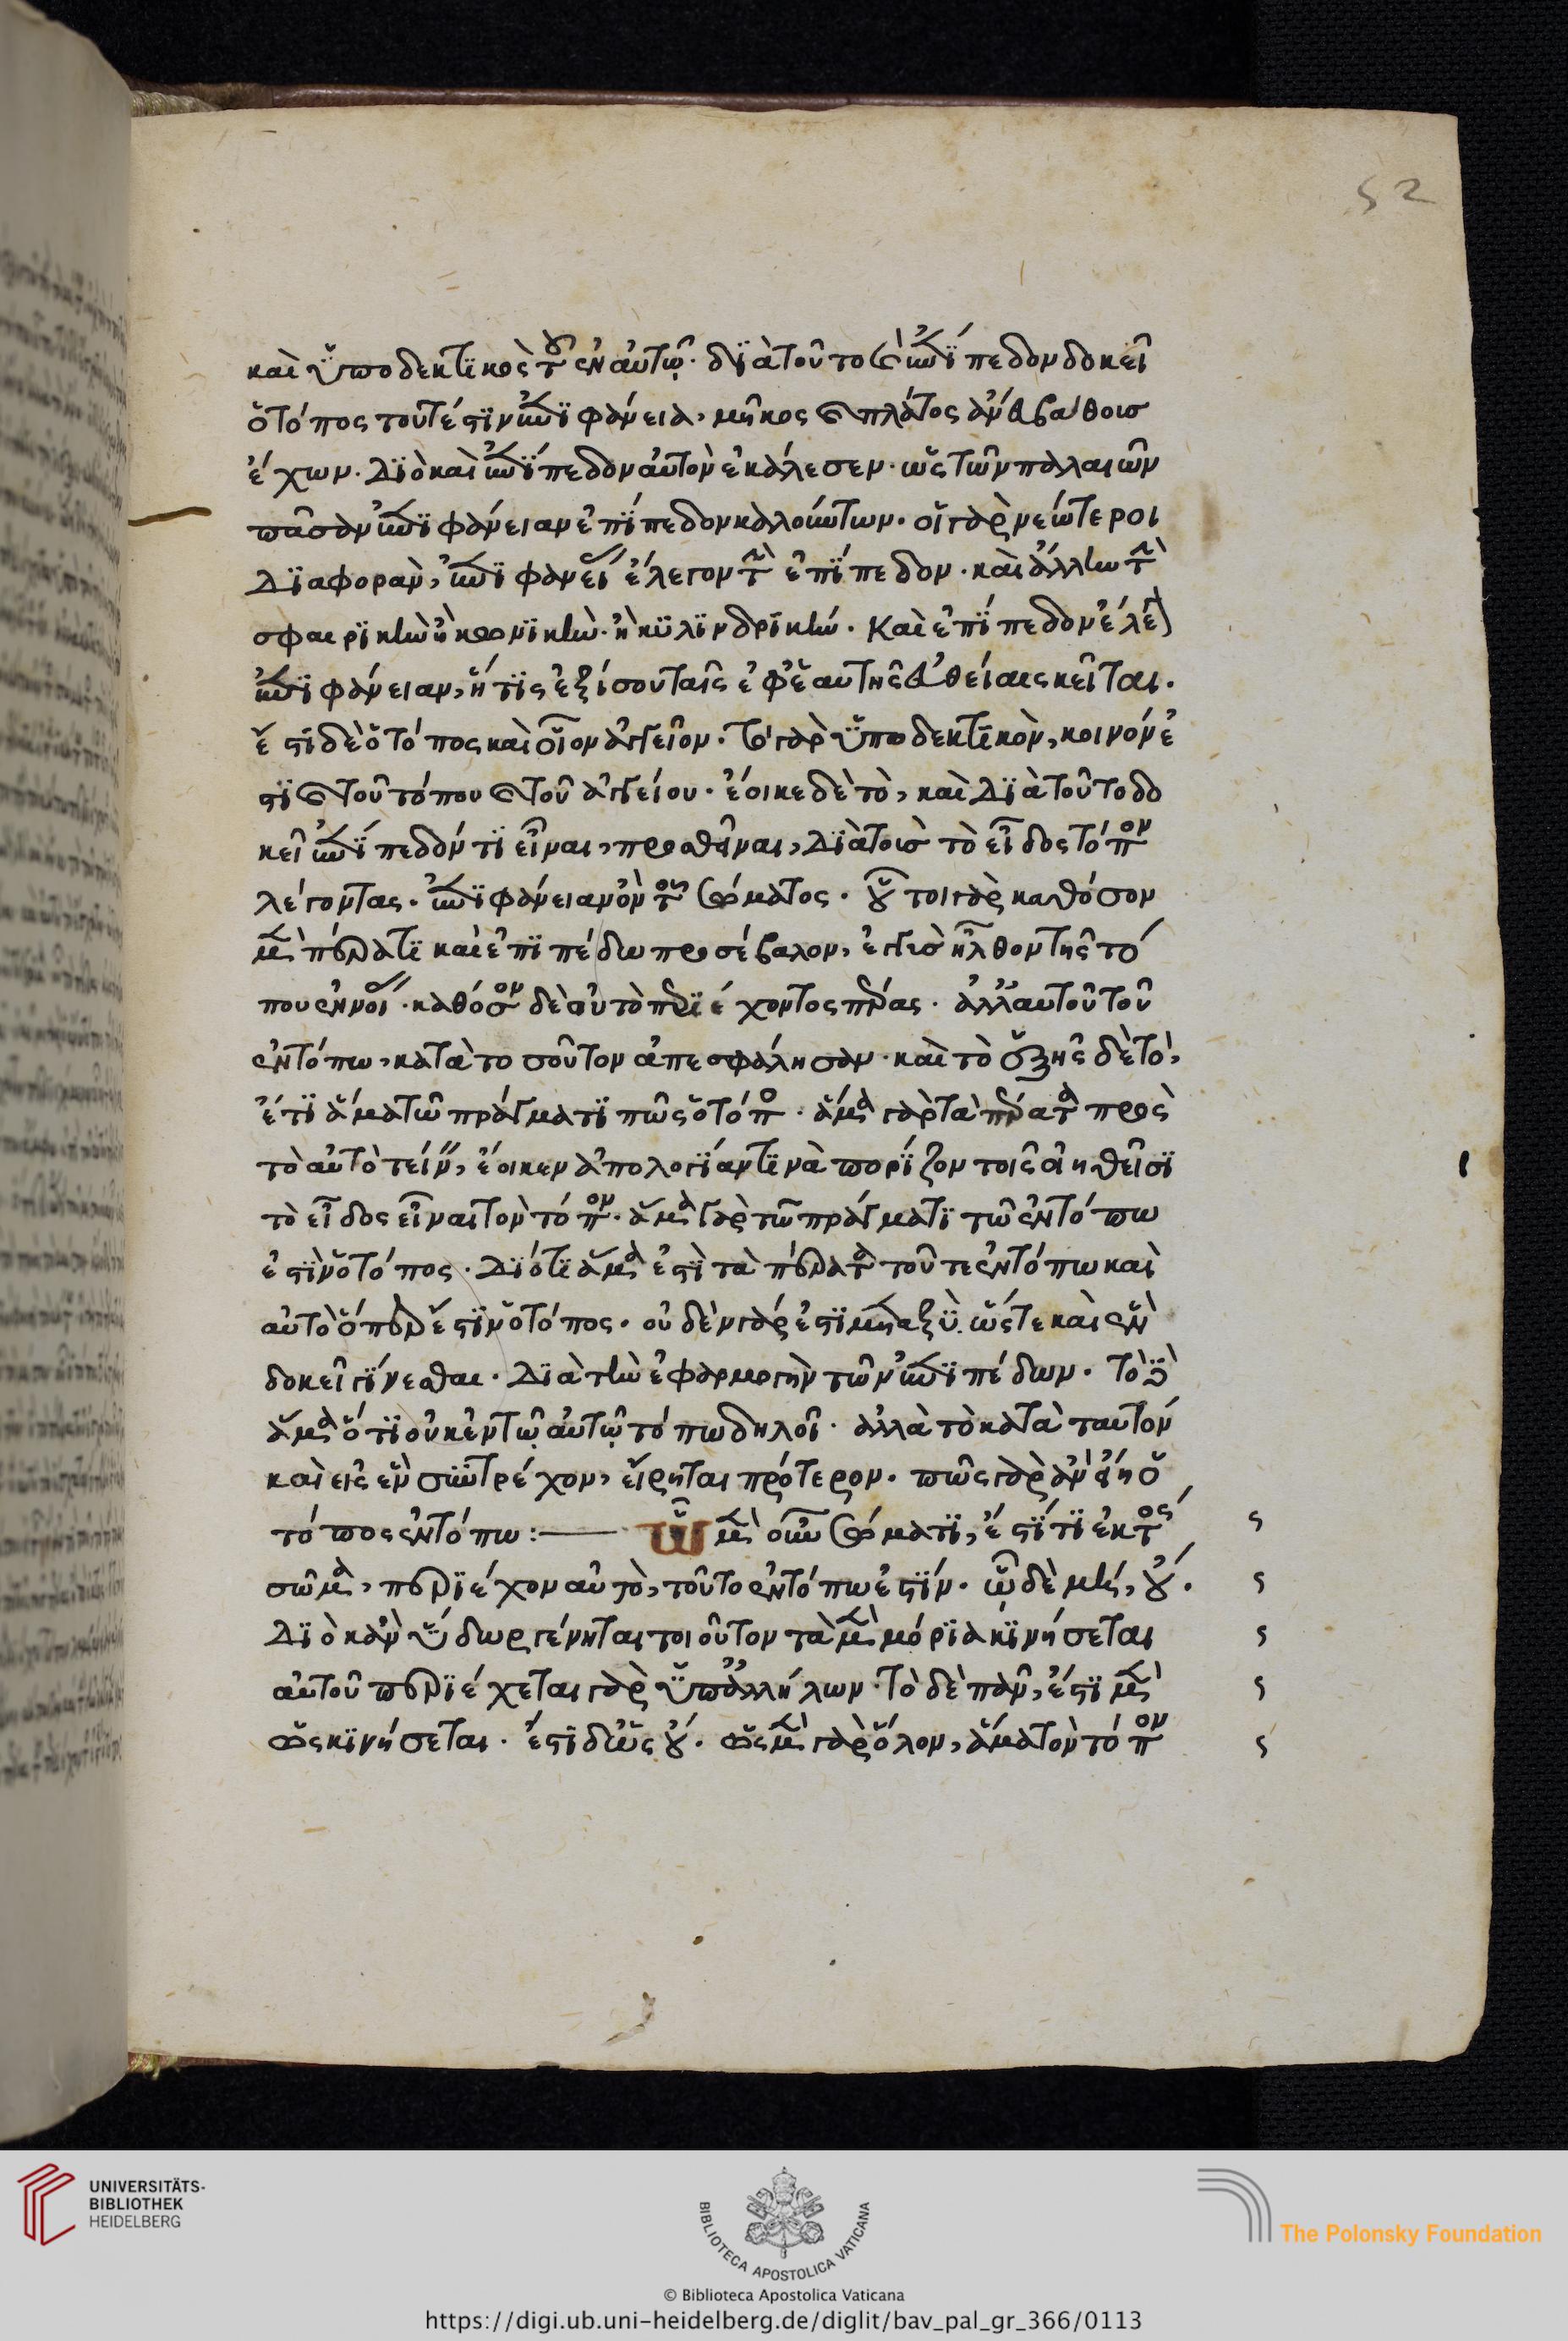 52
καὶ ὑποδεκτικὸς τοῦ ἐν αὐτῷ· διὰ τοῦτο καὶ ἐπίπεδον δοκεῖ
ὁ τόπος τουτέστιν ἐπιφάνεια, μῆκος καὶ πλάτος ἄνευ βάθους
ἔχων. Διὸ καὶ ἐπίπεδον αὐτὸν ἐκάλεσεν· ὡς τῶν παλαιῶν
πᾶσαν ἐπιφάνειαν ἐπίπεδον καλούντων. οἱ γὰρ νεώτεροι
Διαφορὰν, ἐπιφανείας ἔλεγον τὴν ἐπίπεδον· καὶ ἄλλην τὴν
σφαιρικὴν ἢ κωνικὴν· ἢ κυλινδρικήν. Καὶ ἐπίπεδον ἔλεγον
ἐπιφάνειαν, ἥτις ἐξίσου ταῖς ἐφ' ἑαυτῆς εὐθείαις κεῖται.
ἔστι δὲ ὁ τόπος καὶ οἷον ἀγγεῖον. Τὸ γὰρ ὑποδεκτικὸν, κοινόν ἐ
στι καὶ τοῦ τόπου καὶ τοῦ ἀγγείου. ἔοικε δὲ τὸ, καὶ Διὰ τοῦτο δο
κεῖ ἐπίπεδόν τι εἶναι, προσθεῖναι, Διὰ τοὺς τὸ εἶδος τόπον
λέγοντας. ἐπιφάνειαν ὂν τοῦ σώματος. οὗτοι γὰρ καθόσον
μὲν πέρατι καὶ ἐπιπέδω προσέβαλον, ἐγγὺς ἦλθον τῆς τό
που ἐννοίας. καθόσον δὲ οὐ τὸ περιέχοντος πέρας. ἀλλ' αὐτοῦ τοῦ
ἐν τόπω, κατὰ τοσοῦτον ἀπεσφάλησαν. καὶ τὸ ἑξῆς δὲ τὸ,
ἔτι ἅμα τῶ πράγματί πως ὁ τόπος. ἅμα γὰρ τὰ πέρατα πρὸς
τὸ αὐτὸ τείνειν, ἔοικεν ἀπολογίαν τινὰ πορίζον τοῖς οἰηθεῖσι
τὸ εἶδος εἶναι τὸν τόπον. ἅμα γὰρ τῶ πράγματι τῶ ἐν τόπω
ἐστὶν ὁ τόπος. Διότι ἅμα ἐστὶ τὰ πέρατα τοῦ τε ἐν τόπω καὶ
αὐτὸ ὅπερ ἐστὶν ὁ τόπος. οὐδὲν γάρ ἐστι μεταξὺ. ὥστε καὶ ἓν
δοκεῖ γίνεσθαι. Διὰ τὴν ἐφαρμογὴν τῶν ἐπιπέδων. Τὸ δὲ
ἅμα ὅτι οὐκ ἐν τῷ αὐτῷ τόπω δηλοῖ. ἀλλὰ τὸ κατὰ ταυτὸν
καὶ εἰς ἓν συντρέχον, εἴρηται πρότερον. πῶς γὰρ ἂν εἴη ὁ
τόπος ἐν τόπω :— Ὧ μὲν οὖν σώματι, ἔστι τι ἐκτὸς
σῶμα, περιέχον αὐτὸ, τοῦτο ἐν τόπω ἐστίν. ᾧ δὲ μὴ, οὔ.
Διὸ κἂν ὕδωρ γένηται τοιοῦτον τὰ μὲν μόρια κινήσεται
αὐτοῦ περιέχεται γὰρ ὑπ' ἀλλήλων. τὸ δὲ πᾶν, ἔστι μὲν
ὡς κινήσεται. ἔστι δ' ὡς οὔ. ὡς μὲν γὰρ ὅλον, ἅμα τὸν τόπον
UNIVERSITÄTS-
BIBLIOTHEK
HEIDELBERG
BIBLIOTECA APOSTOLICA VATICANA
The Polonsky Foundation
© Biblioteca Apostolica Vaticana
https://digi.ub.uni-heidelberg.de/diglit/bav_pal_gr_366/0113